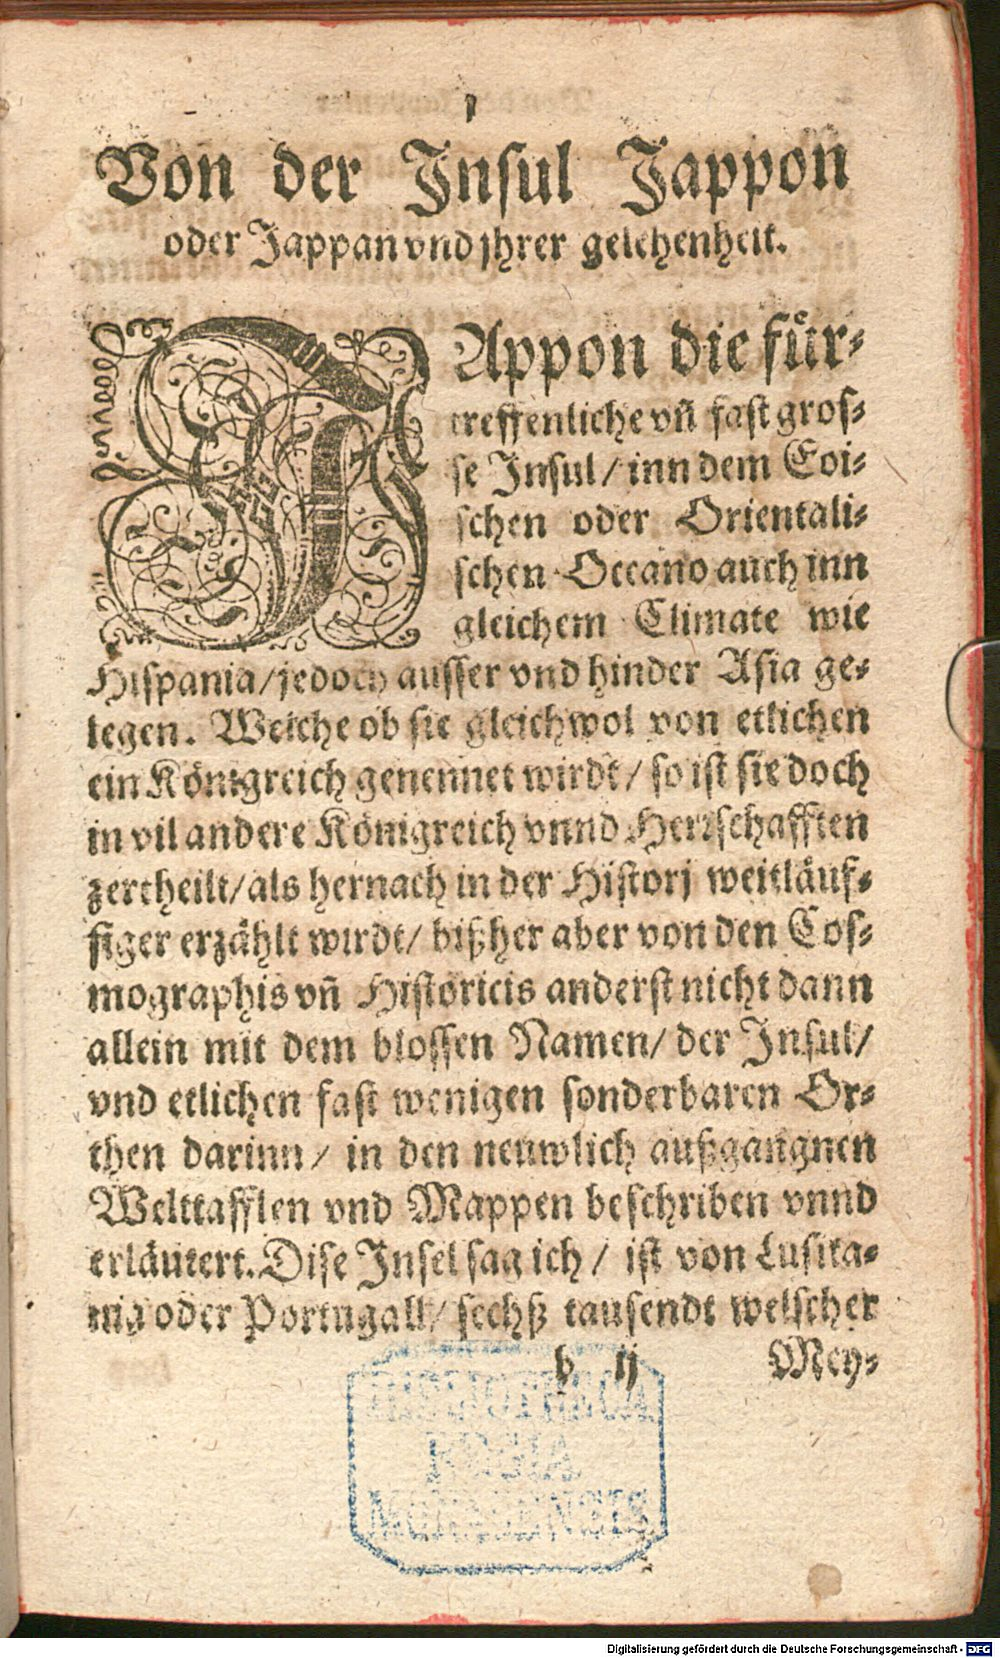 1
Von der Insul Jappon
oder Jappan vnd jhrer gelegenheit.
JAppon die fuͤr-
treffenliche vñ fast gros-
se Insul / inn dem Eoi-
schen oder Orientali-
schen Oceano auch inn
gleichem Climate wie
Hispania / jedoch ausser vnd hinder Asia ge-
legen. Welche ob sie gleichwol von etlichen
ein Königreich genennet wirdt / so ist sie doch
in vil andere Königreich vnnd Herrschafften
zertheilt / als hernach in der Historj weitläuf-
figer erzählt wirdt / bißher aber von den Cos-
mographis vñ Historicis anderst nicht dann
allein mit dem blossen Namen / der Insul /
vnd etlichen fast wenigen sonderbaren Or-
then darinn / in den neuwlich außgangnen
Welttafflen vnd Mappen beschriben vnnd
erläutert. Dise Insel sag ich / ist von Lusita-
nia oder Portugall / sechß tausendt welscher
b ij Mey-
BIBLIOTHECA
REGIA
MONACENSIS
Digitalisierung gefördert durch die Deutsche Forschungsgemeinschaft - DFG